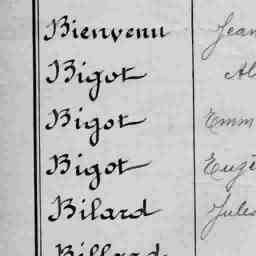 Bienvenu Jean
Bigot Al
Bigot Emm
Bigot Eugè
Bilard Jules
Billard